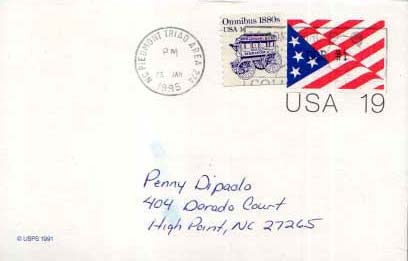 Omnibus 1880s
USA 1¢
NC PIEDMONT TRIAD AREA
PM
JAN
1995
USA 19
Penny Dipaolo
404 Dorado Court
High Point, NC 27265
© USPS 1991